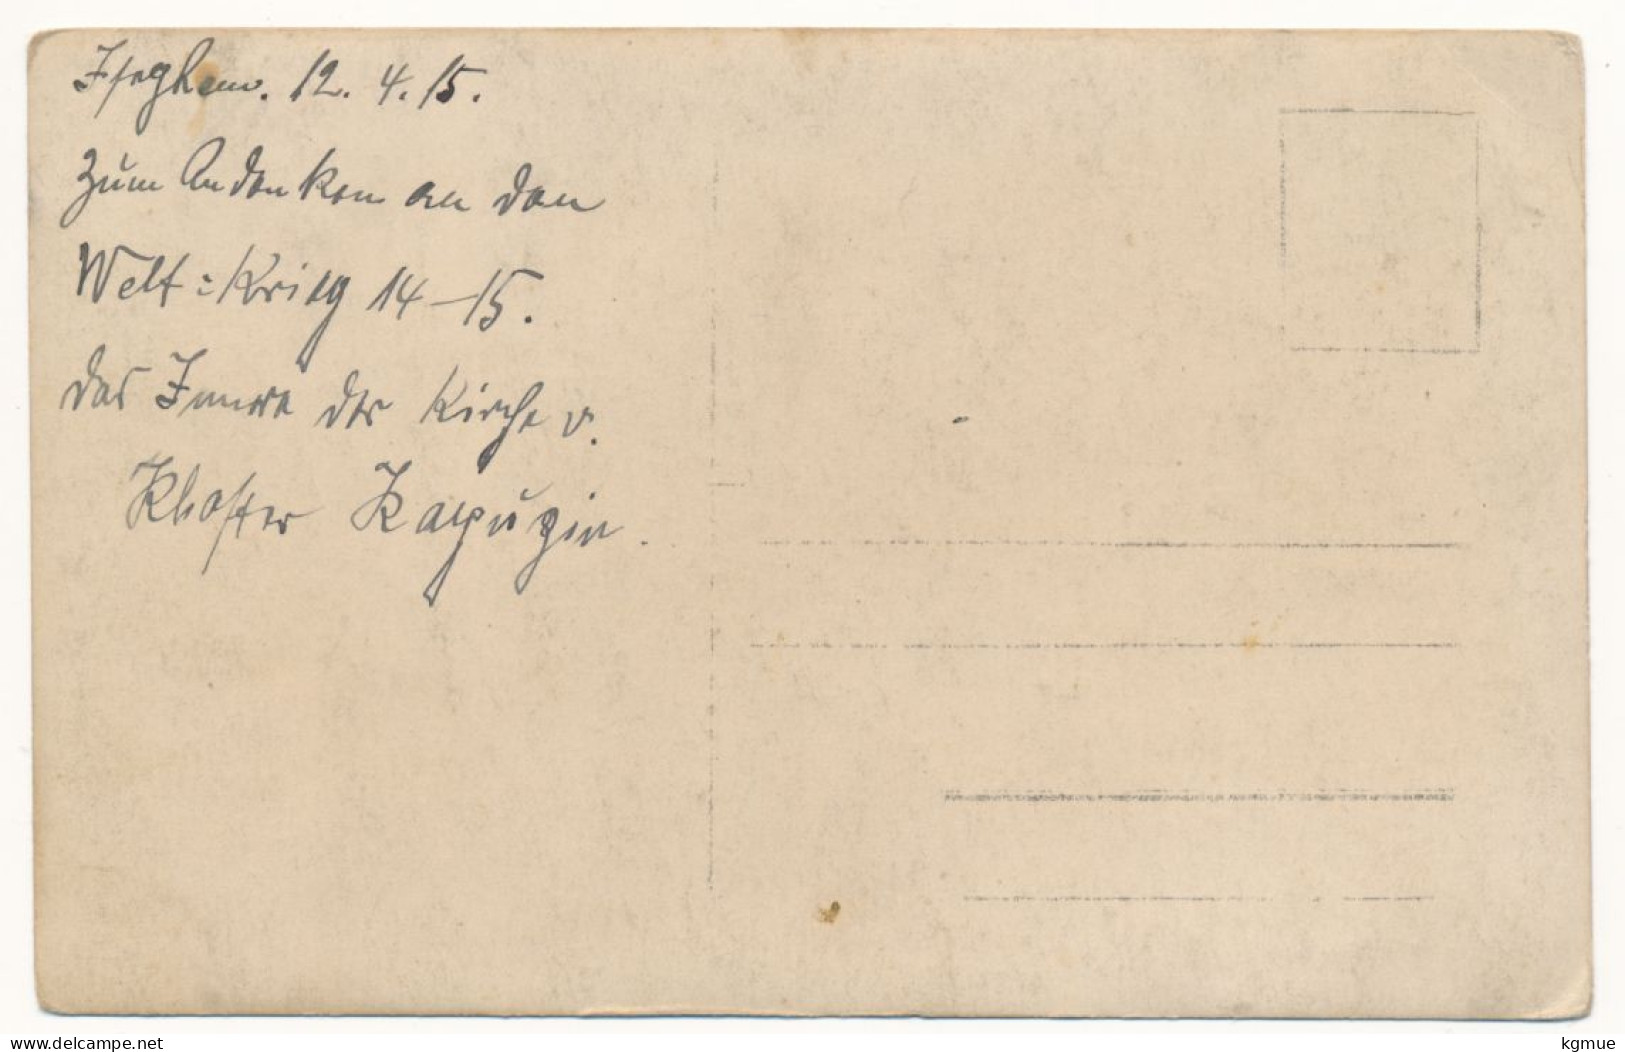 Iseghem. 12. 4. 15.
Zum Andenken an den
Welt=Krieg 14–15.
das Innere der Kirche v.
Kloster Kapuzin.
www.delcampe.net
kgmue